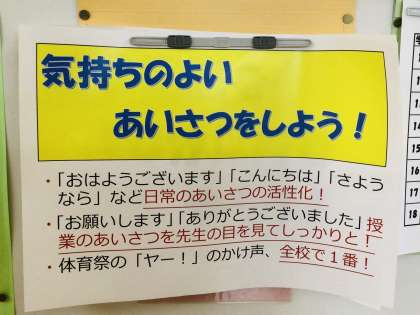 気持ちのよい
あいさつをしよう！
・「おはようございます」「こんにちは」「さよう
なら」など日常のあいさつの活性化！
・「お願いします」「ありがとうございました」授
業のあいさつを先生の目を見てしっかりと！
・体育祭の「ヤー！」のかけ声、全校で１番！
14
15
16
17
18